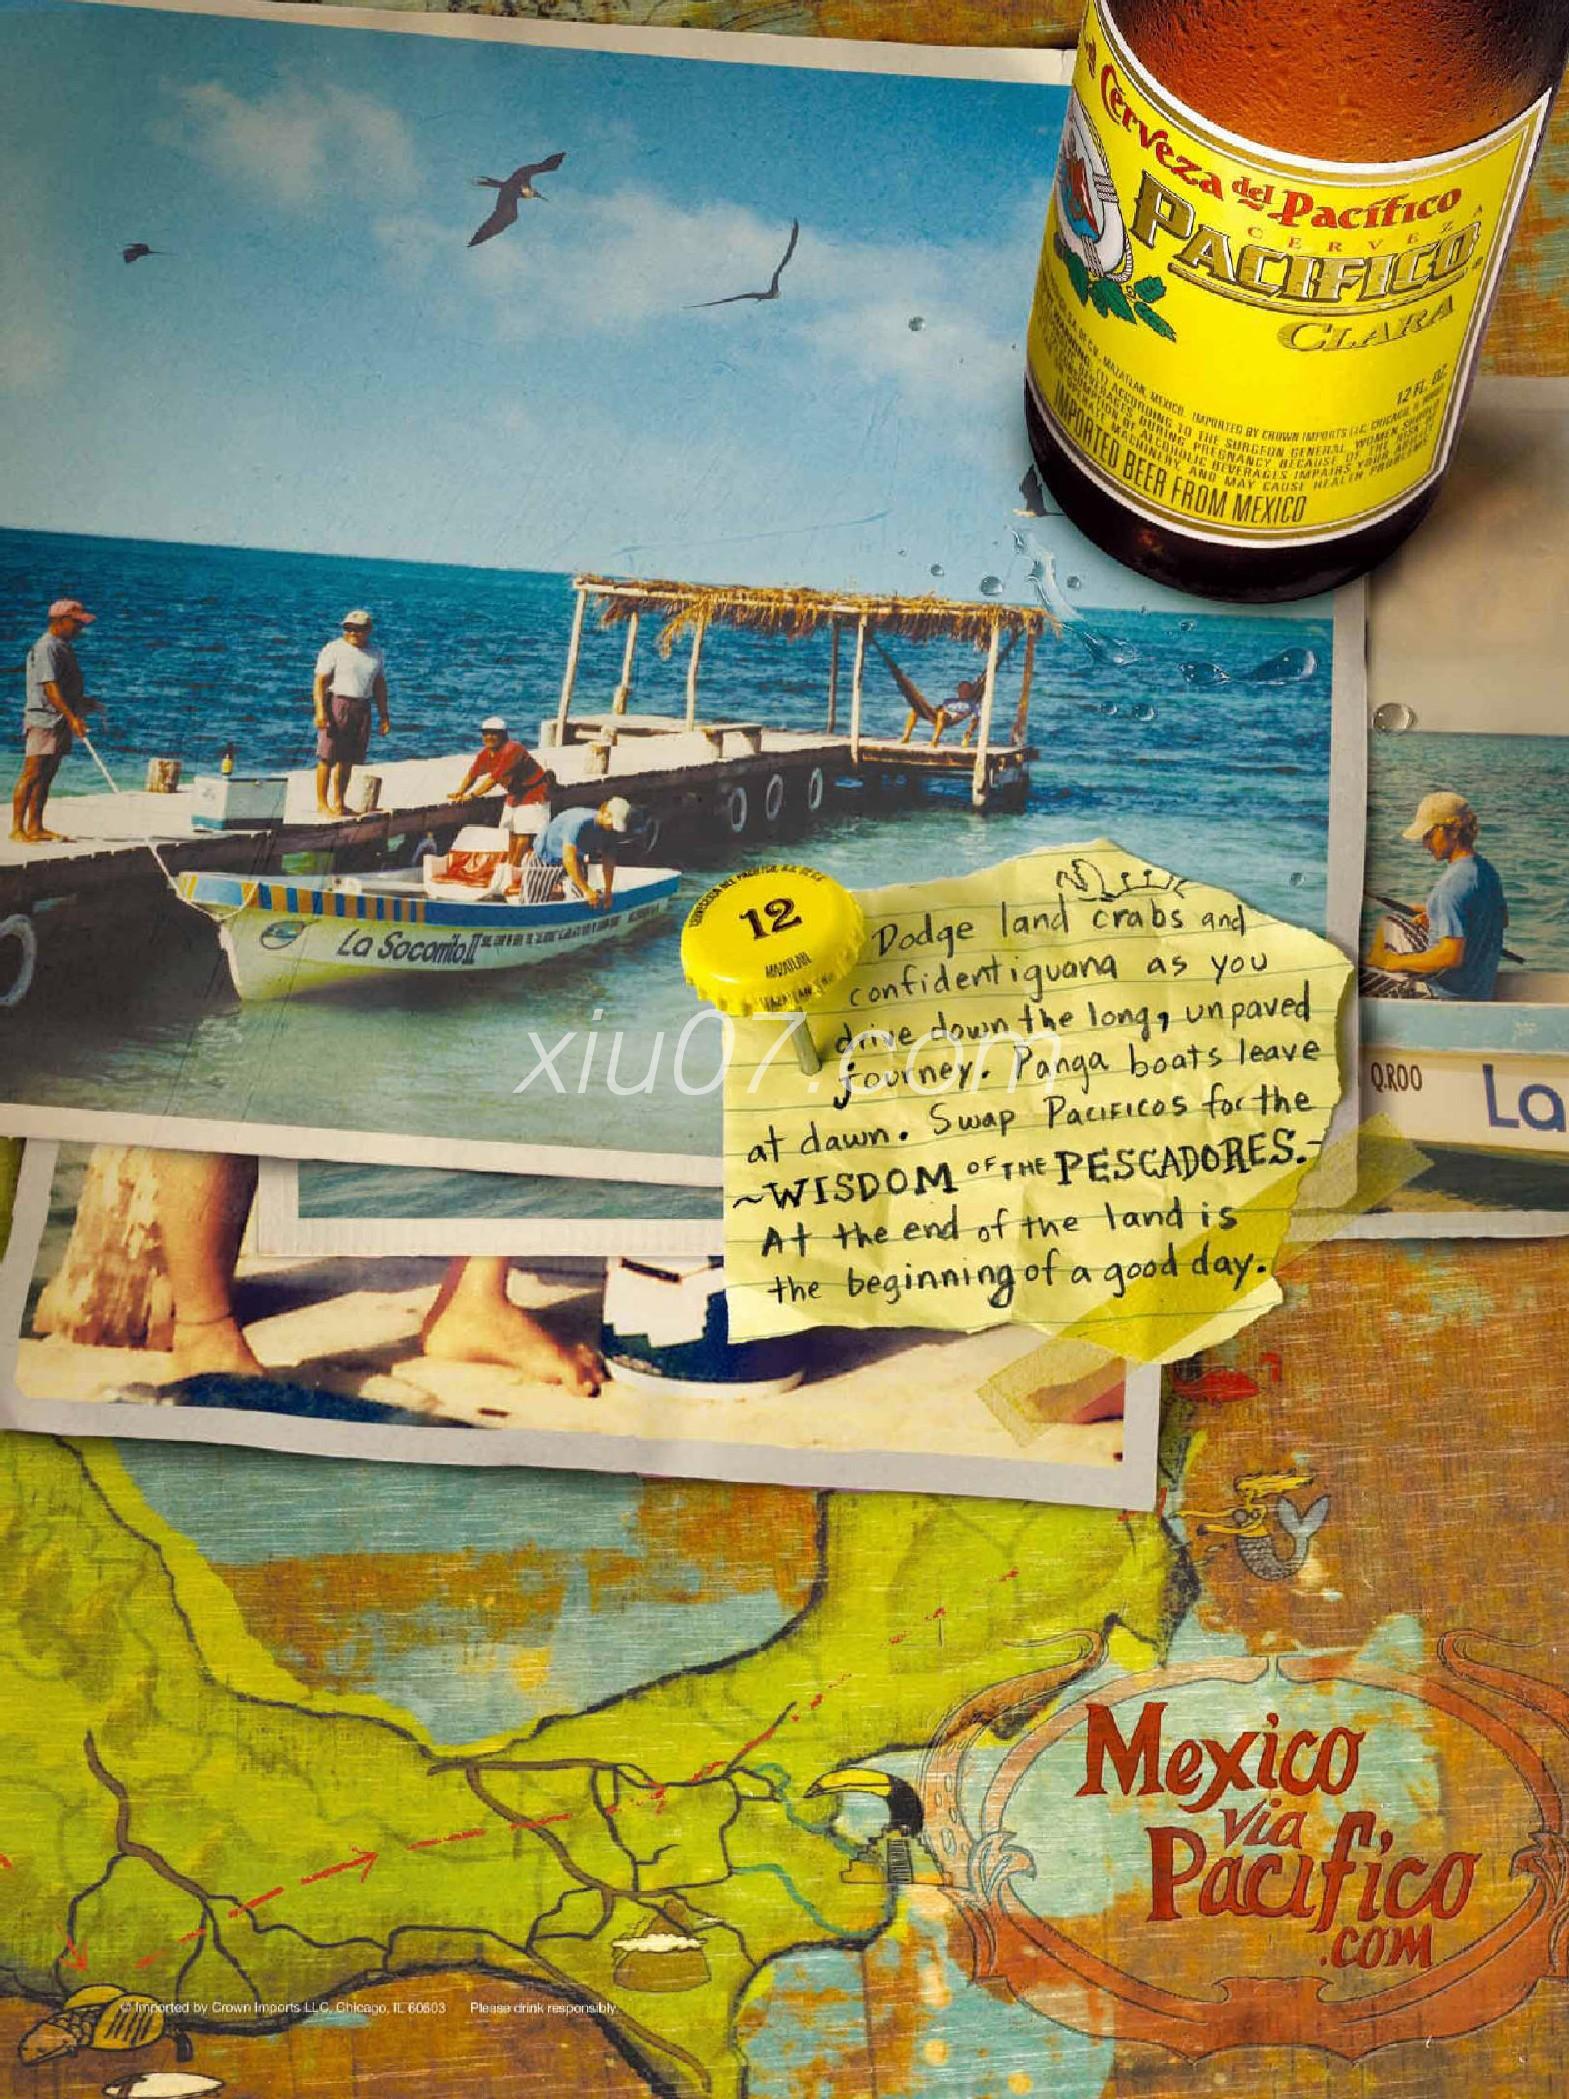 Cerveza del Pacífico
CERVEZA
PACIFICO
CLARA
12 FL. OZ.
MAZATLAN, MEXICO. IMPORTED BY CROWN IMPORTS LLC, CHICAGO, IL
ACCORDING TO THE SURGEON GENERAL, WOMEN SHOULD
DURING PREGNANCY BECAUSE OF THE RISK OF
OF ALCOHOLIC BEVERAGES IMPAIRS YOUR ABILITY
MACHINERY, AND MAY CAUSE HEALTH PROBLEMS.
IMPORTED BEER FROM MEXICO
La Socorrito II
12
MAZATLAN
Dodge land crabs and
confident iguana as you
drive down the long, unpaved
journey. Panga boats leave
at dawn. Swap PACIFICOS for the
~WISDOM OF THE PESCADORES.~
At the end of the land is
the beginning of a good day.
xiu07.com
Q.ROO
La
Mexico
via
Pacifico
.com
© Imported by Crown Imports LLC, Chicago, IL 60603 Please drink responsibly.